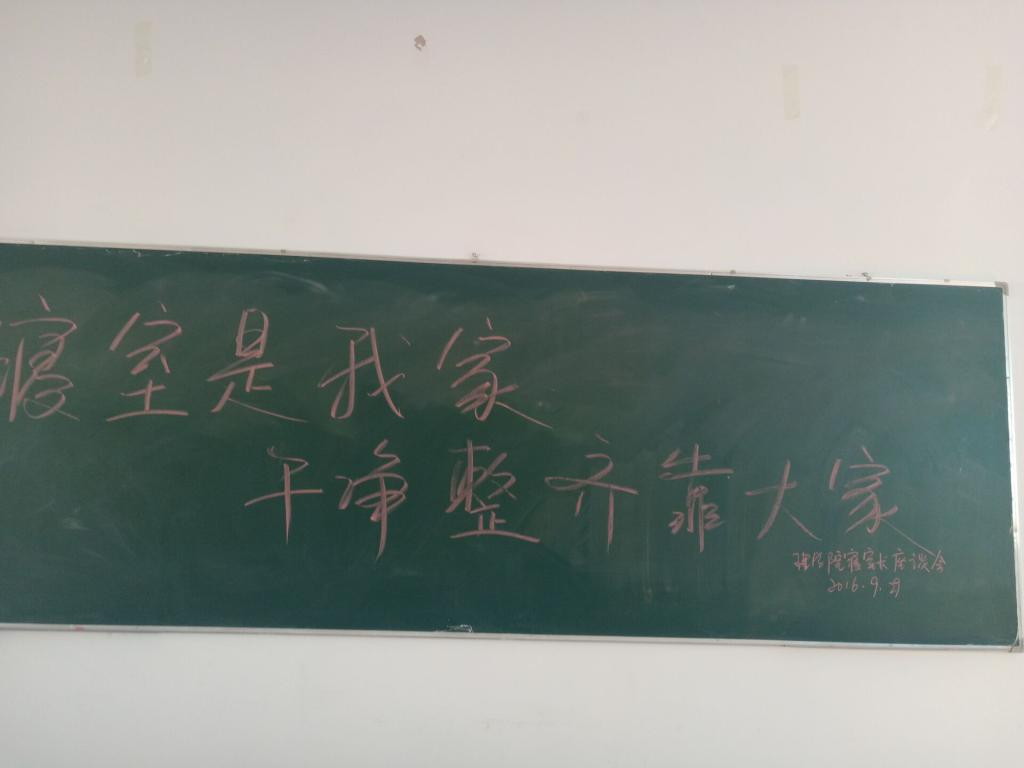 寝室是我家
干净整齐靠大家
理学院寝室长座谈会
2016.9.